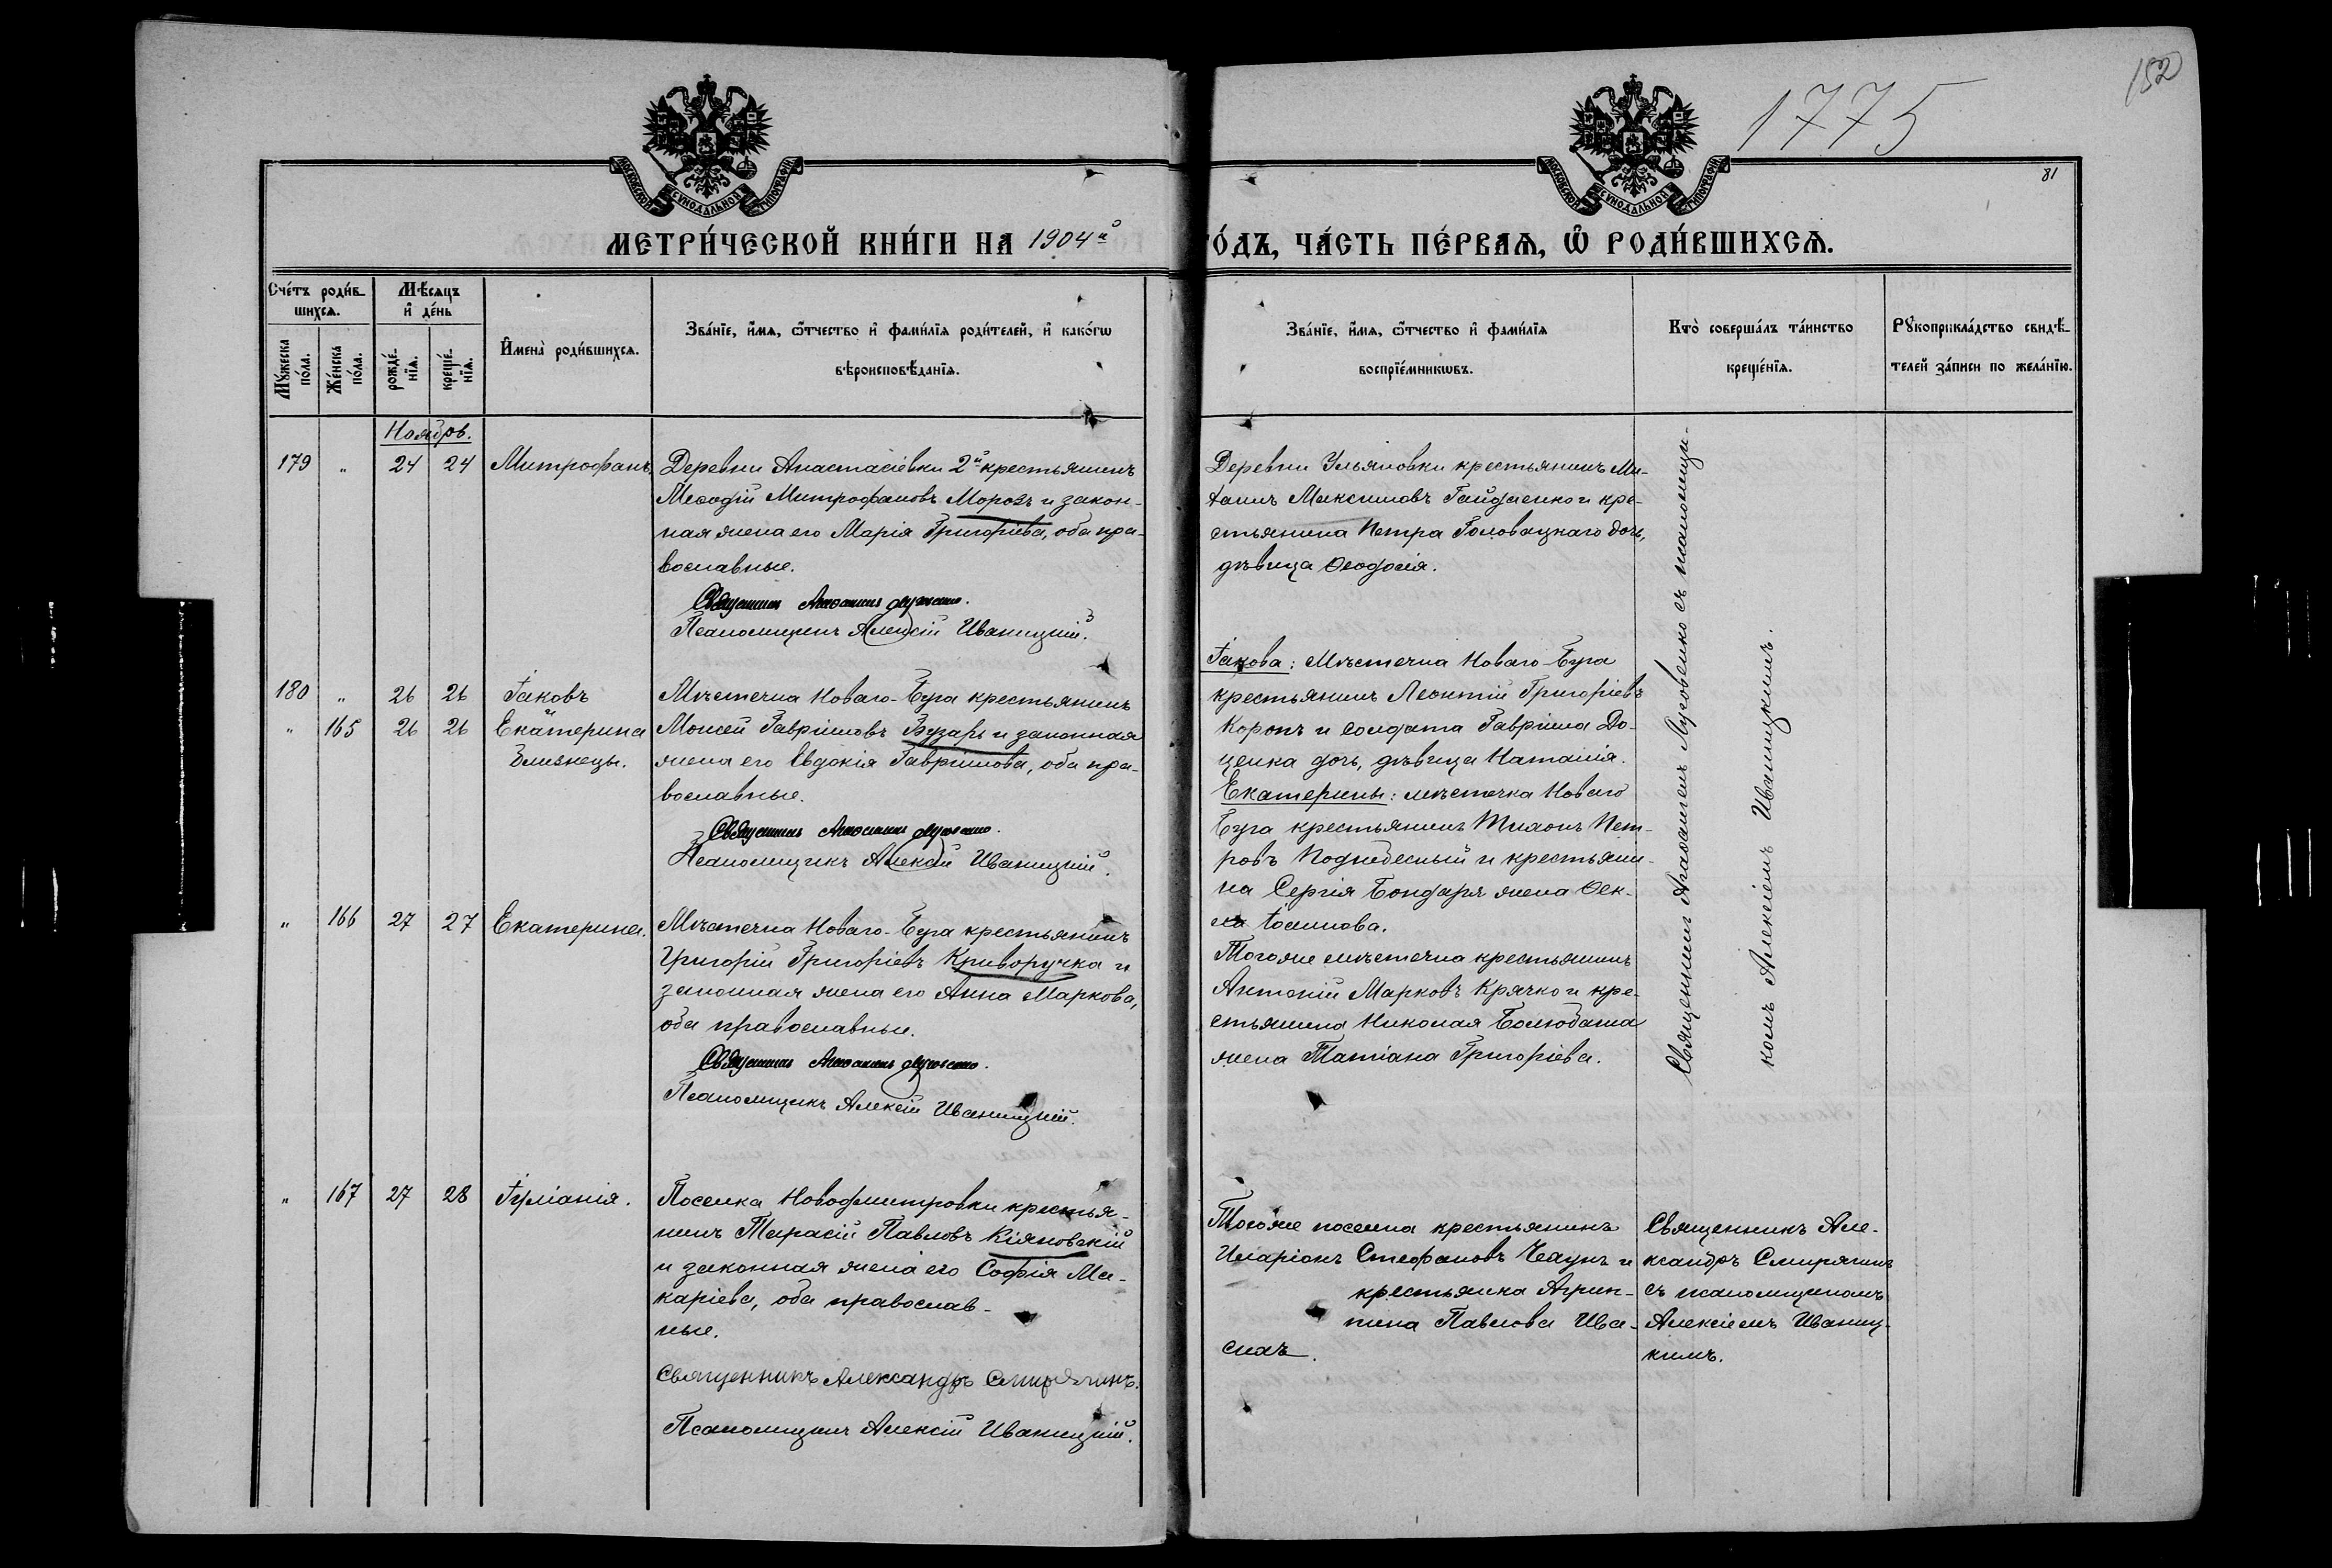 152
1775
81
МОСКОВСКОЙ СѴНОДАЛЬНОЙ ТИПОГРАФІИ
МОСКОВСКОЙ СѴНОДАЛЬНОЙ ТИПОГРАФІИ
МЕТРИ́ЧЕСКОЙ КНИ́ГИ НА 1904й
ГО́ДЪ, ЧА́СТЬ ПЕ́РВАѦ, Ѡ҆ РОДИ́ВШИХСѦ.
Сче́тъ роди́в-
шихсѧ.
Мꙋ́жеска по́ла.
Же́нска по́ла.
Мѣ́сѧцъ
и҆ де́нь
рожде́-
нїѧ.
креще́-
нїѧ.
И҆мена̀ роди́вшихсѧ.
Зва́нїе, и҆́мѧ, ѻ҆́тчество и҆ фами́лїѧ роди́телей, и҆ како́гѡ
вѣроисповѣ́данїѧ.
Зва́нїе, и҆́мѧ, ѻ҆́тчество и҆ фами́лїѧ
воспрїе́мникѡвъ.
Кто̀ соверша́лъ та́инство
креще́нїѧ.
Рꙋкоприкла́дство свидѣ́-
телей за́писи по жела́нїю.
Ноябрь.
179 " 24 24 Митрофанъ.
Деревни Анастасіевки 2й крестьянинъ
Меѳодій Митрофановъ Морозъ и закон-
ная жена его Марія Григоріева, оба пра-
вославные.
Священникъ Агаѳангелъ Луговенко.
Псаломщикъ Алексій Иваницкій.
Деревни Ульяновки крестьянинъ Ми-
хаилъ Максимовъ Гайдаенко и кре-
стьянина Петра Головацкаго дочь,
дѣвица Ѳеодосія.
180 " 26 26 Іаковъ
и
" 165 26 26 Екатерина
Близнецы.
Мѣстечка Новаго-Буга крестьянинъ
Моисей Гавріиловъ Бузарь и законная
жена его Евдокія Гавріилова, оба пра-
вославные.
Священникъ Агаѳангелъ Луговенко.
Псаломщикъ Алексій Иваницкій.
Іакова: Мѣстечка Новаго-Буга
крестьянинъ Леонтій Григоріевъ
Коропъ и солдата Гавріила До-
ценка дочь, дѣвица Наталія.
Екатерины: мѣстечка Новаго
Буга крестьянинъ Тихонъ Пет-
ровъ Поднебесный и крестьяни-
на Сергія Бондаря жена Ѳек-
ла Іосипова.
" 166 27 27 Екатерина.
Мѣстечка Новаго-Буга крестьянинъ
Григорій Григоріевъ Криворучка и
законная жена его Анна Маркова,
оба православные.
Священникъ Агаѳангелъ Луговенко.
Псаломщикъ Алексій Иваницкій.
Того же мѣстечка крестьянинъ
Антоній Марковъ Крячко и кре-
стьянина Николая Болюбаша
жена Татіана Григоріева.
Священникъ Агаѳангелъ Луговенко съ псаломщи-
комъ Алексіемъ Иваницкимъ.
" 167 27 28 Іуліанія.
Поселка Новодмитровки крестья-
нинъ Тарасій Павловъ Кіяновскій
и законная жена его Софія Ма-
каріева, оба православ-
ные.
Священникъ Александръ Смирягинъ.
Псаломщикъ Алексій Иваницкій.
Того же поселка крестьянинъ
Иларіонъ Стефановъ Чаунъ и
крестьянка Агрип-
пина Павлова Ива-
Священникъ Але-
ксандръ Смирягинъ
съ псаломщикомъ
Алексіемъ Иваниц-
кимъ.